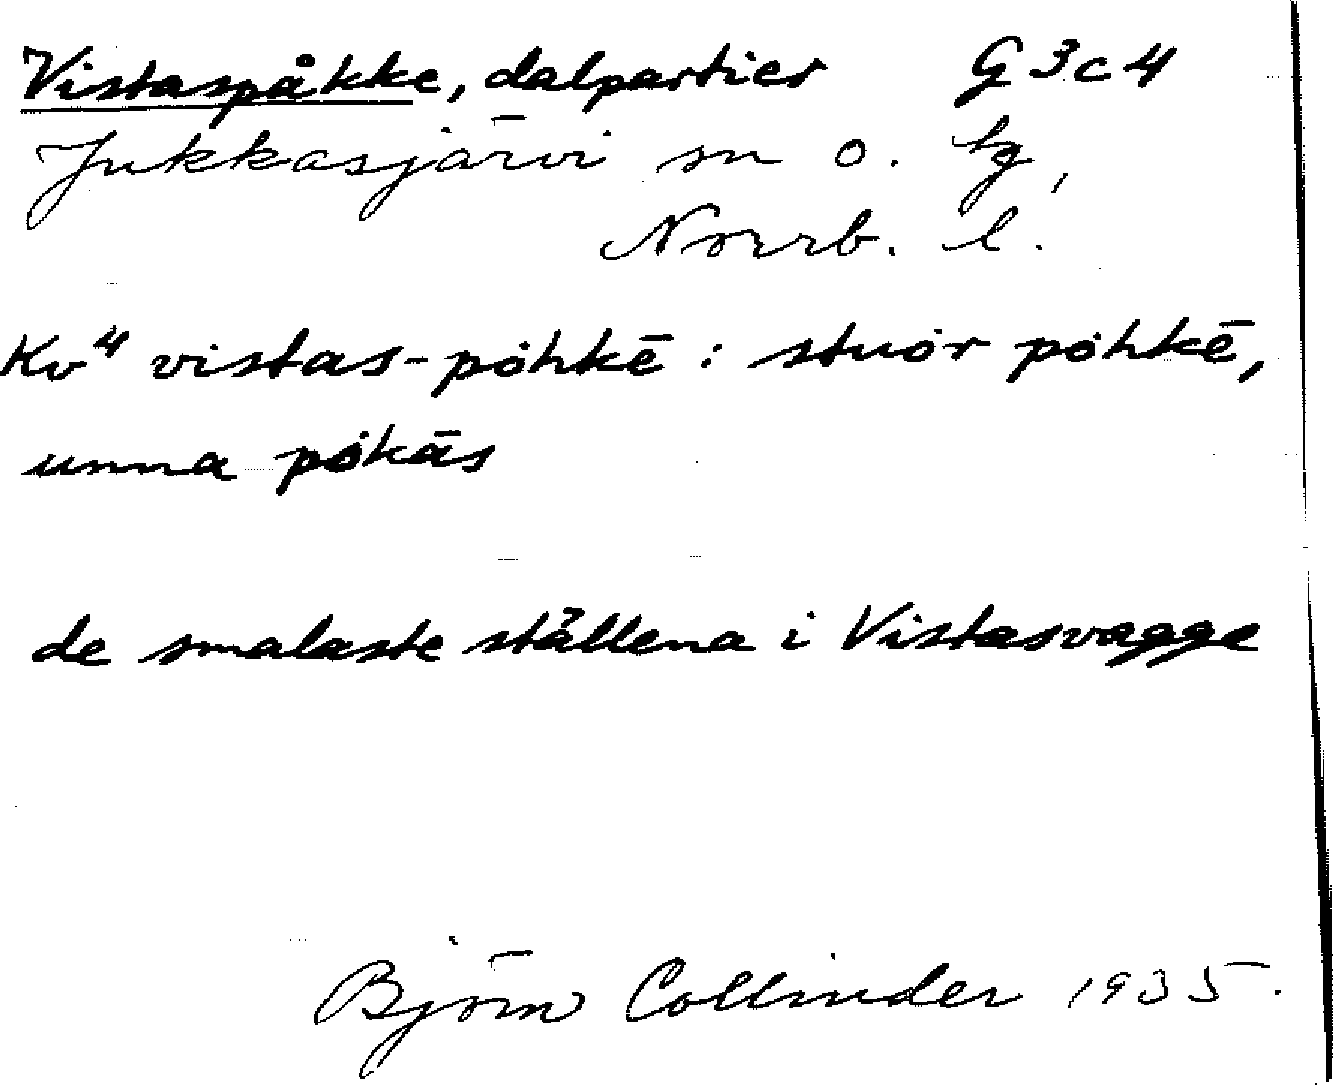 Vistaspåkke, dalpartier G3c4
Jukkasjärvi sn o. tg,
Norrb. l.
Kv⁴ vistas-pȯhkē : stuor pȯhkē,
unna pȯkās
de smalaste ställena i Vistasvagge
Björn Collinder 1935.